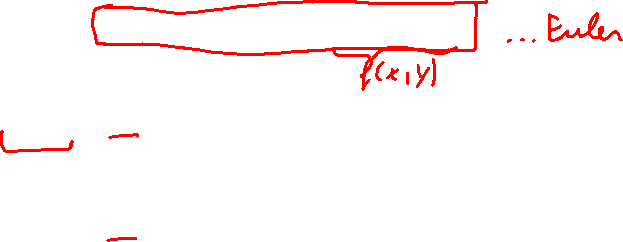 ... Euler
f(x,y)